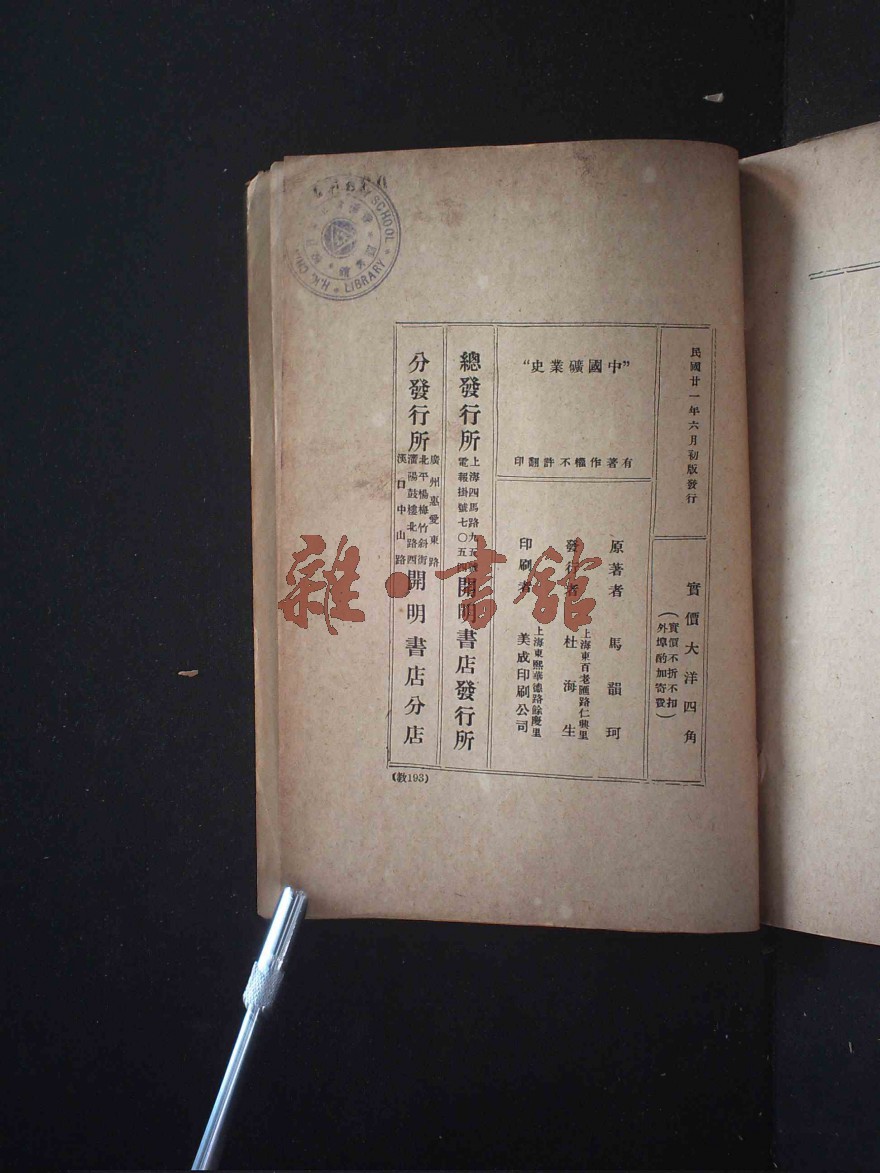 民國廿一年六月初版發行
實價大洋四角
(實價不折不扣
外埠酌加寄費)
"中國礦業史"
有著作權不許翻印
原著者 馬韻珂
發行者 杜海生
上海東百老匯路仁興里
印刷者 美成印刷公司
上海東熙華德路餘慶里
總發行所
上海四馬路九五號
電報掛號七〇五四
開明書店發行所
分發行所
廣州惠愛東路
北平楊梅竹斜街
瀋陽鼓樓北路西
漢口中山路
開明書店分店
(教193)
SCHOOL
LIBRARY
H.K.
雜·書館